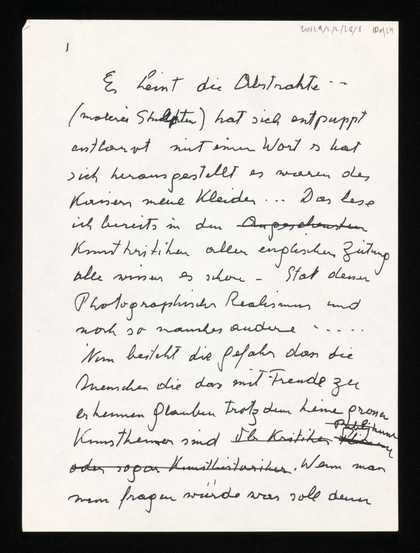 1
Es heint die Abstrakte --
(malerei Skulptur) hat sich entpuppt
entlarvt mit einem Wort s hat
sich herausgestellt es waren des
Kaisers neue Kleider ... Das lese
ich bereits in den Angesehensten
Kunstkritiken aller englischen Zeitung
alle wissen es schon - Stat dessen
Photographischer Realismus und
noch so manches andere .....
Nun besteht die Gefahr dass die
Menschen die das mit Freude zu
erkennen glauben trotzdem keine grossen
Kunstkenner sind Publikum
oder sogar Kunsthistoriker. Wenn man
nun fragen würde was soll denn